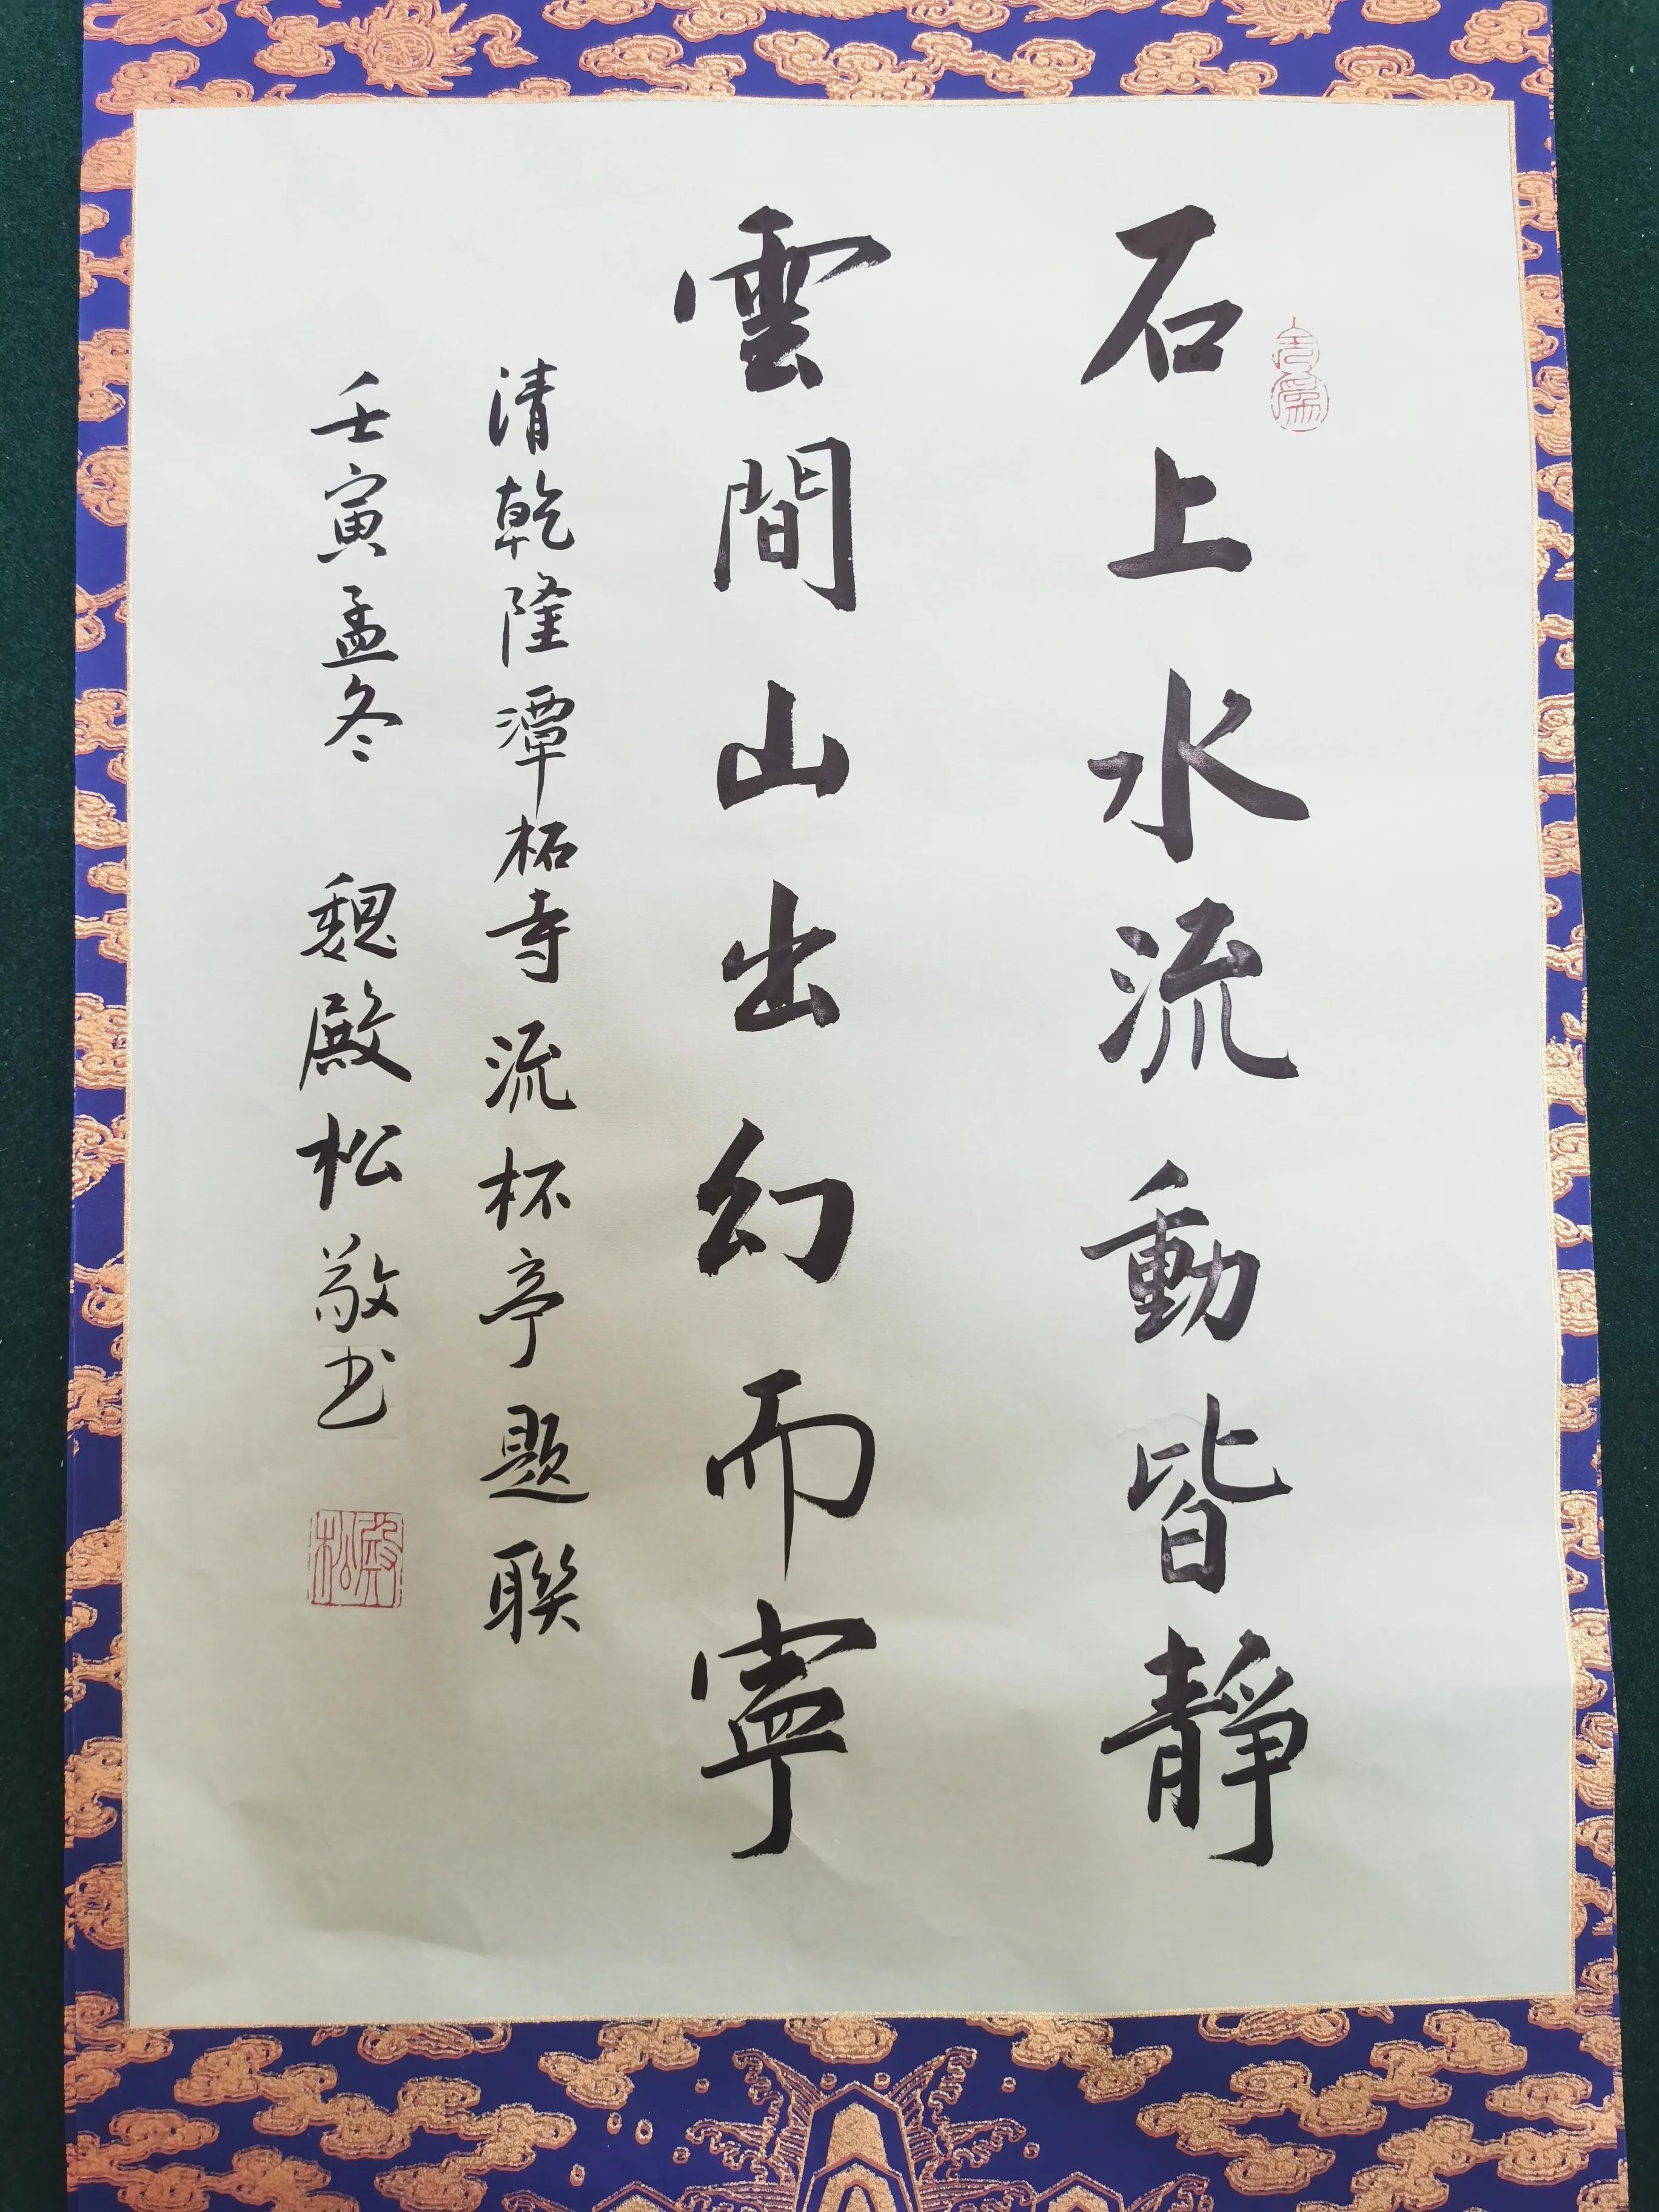 石上水流動皆靜
雲間山出幻而寧
清乾隆潭柘寺流杯亭題聯
壬寅孟冬 魏殿松敬书
殿松